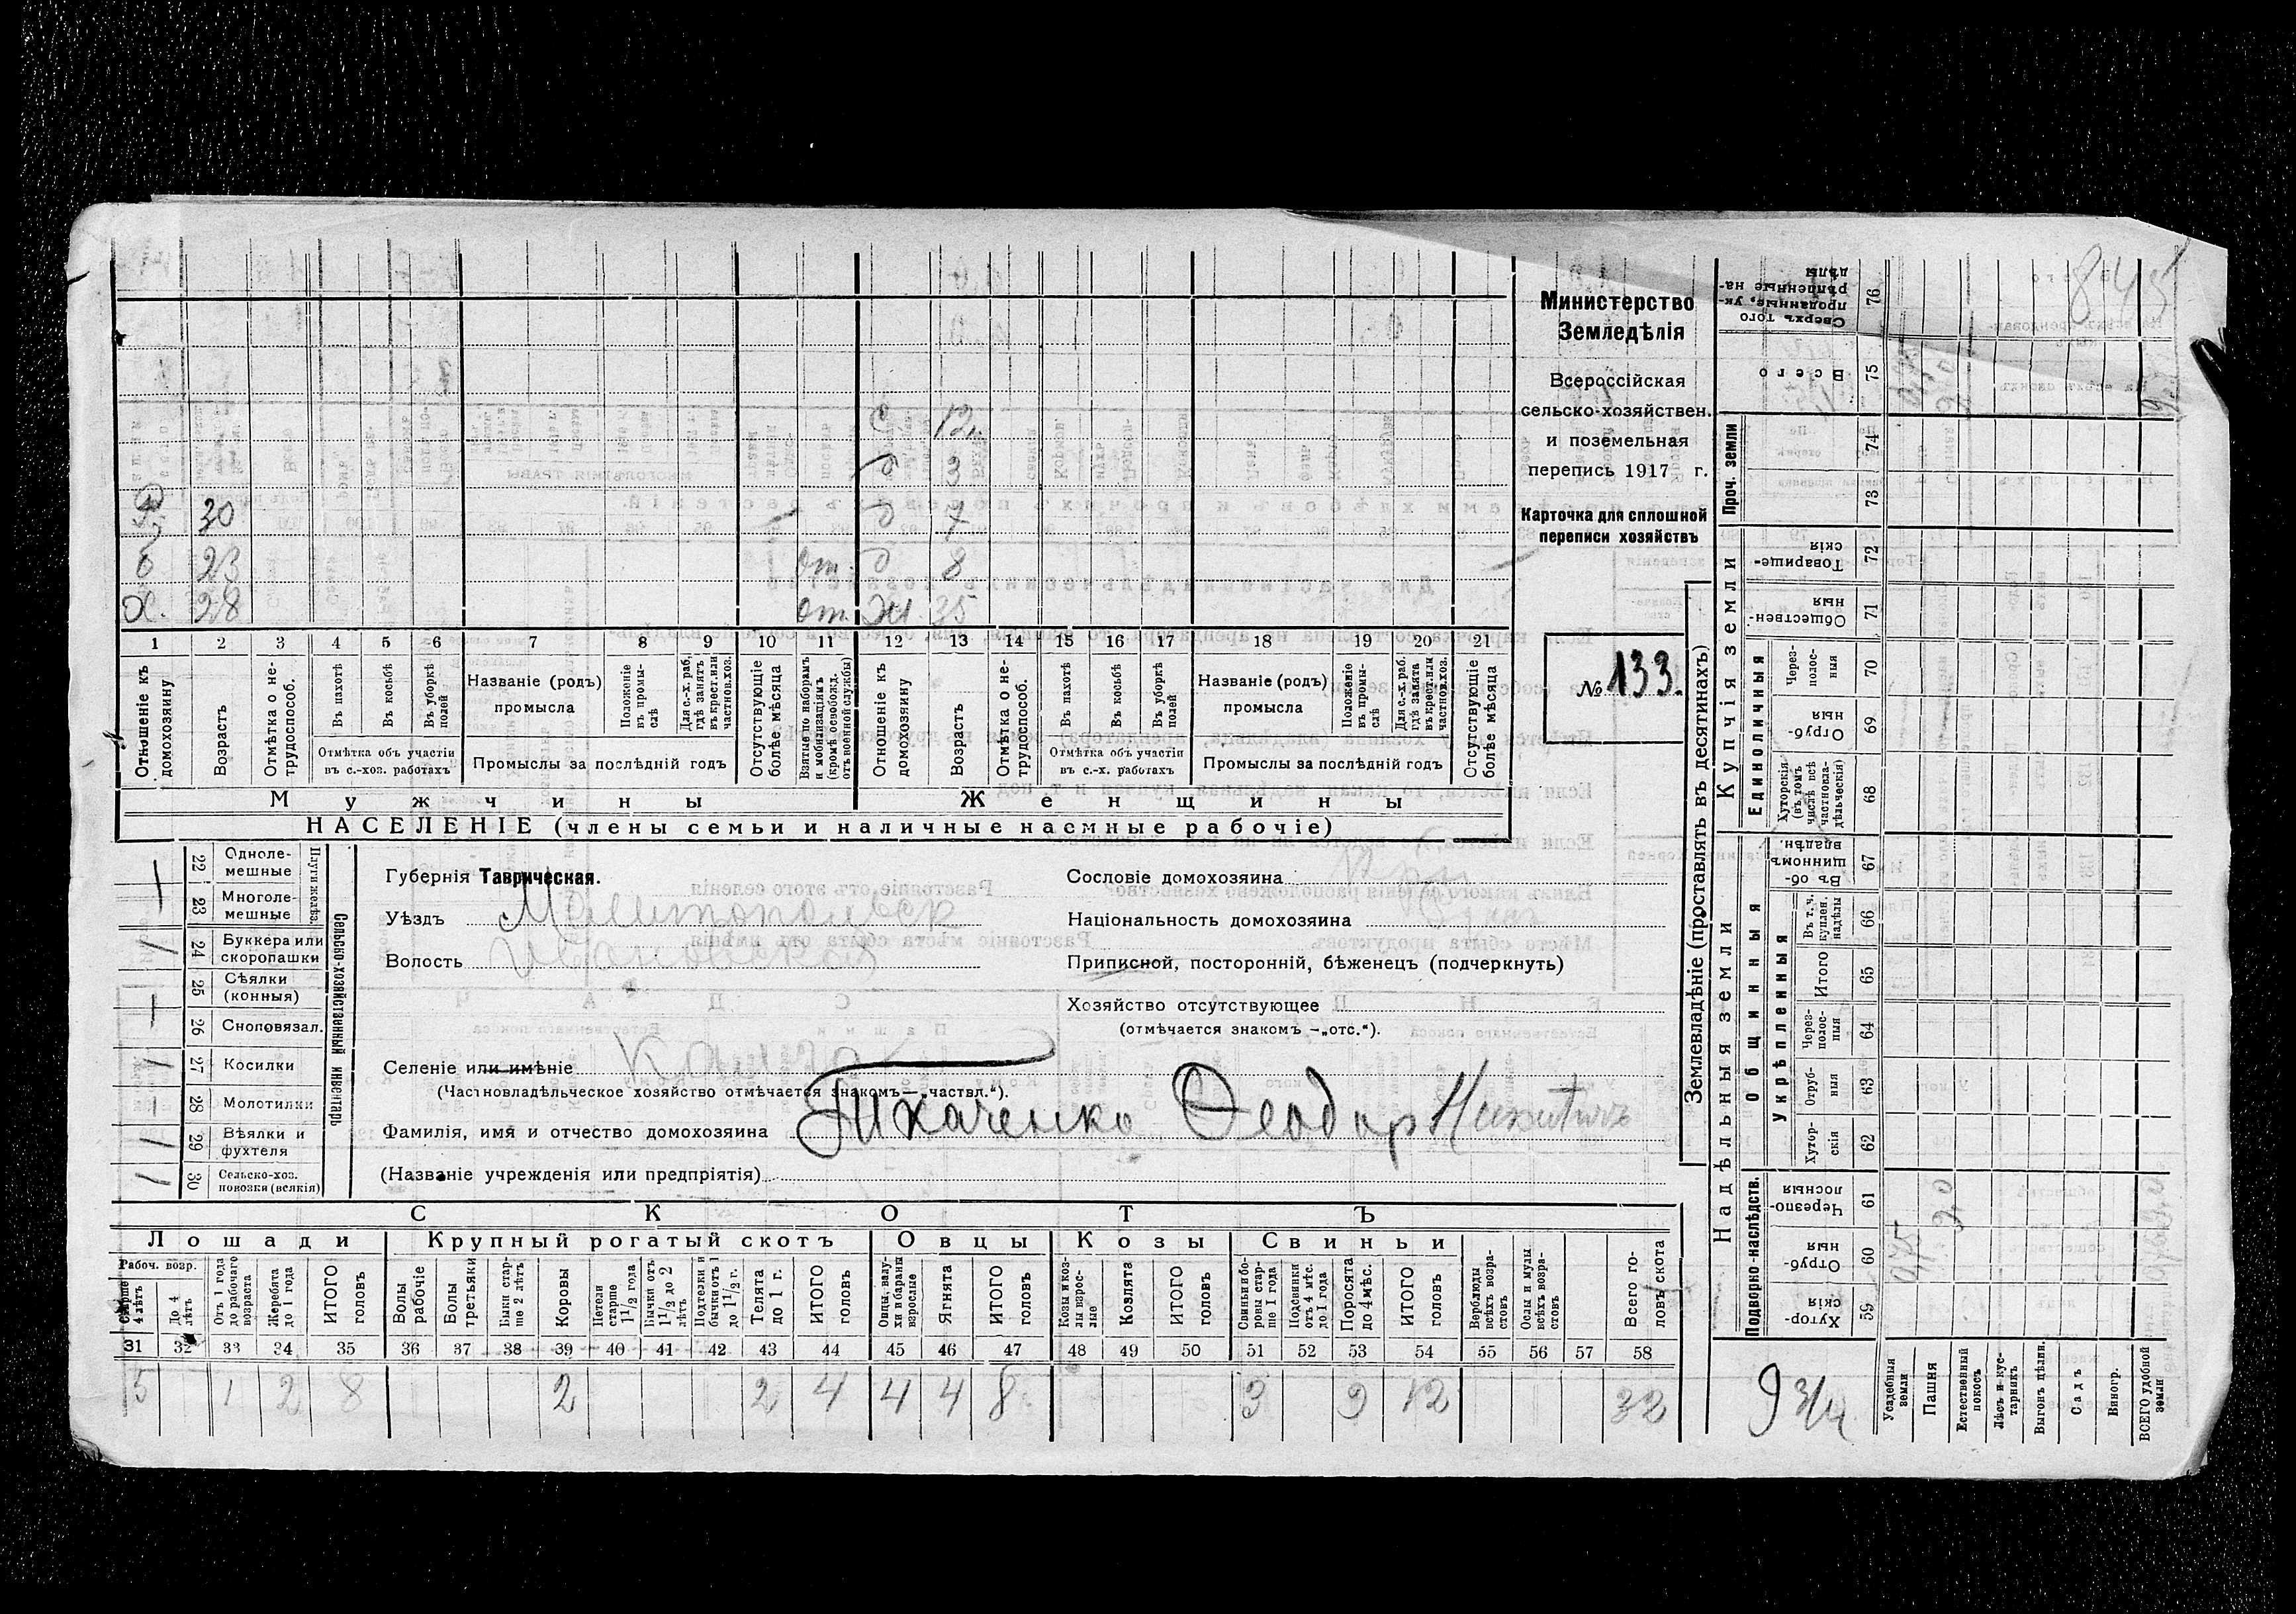 Министерство
Земледѣлія
Всероссійская
сельско-хозяйствен.
и поземельная
перепись 1917 г.
Карточка для сплошной
переписи хозяйствъ
№ 133.
845
12
3
30 7
23 от. 8
Х. 28 от. Ж 35
1 2 3 4 5 6 7 8 9 10 11 12 13 14 15 16 17 18 19 20 21
Отношеніе къ домохозяину
Возрастъ
Отмѣтка о не-трудоспособ.
Въ пахотѣ
Въ косьбѣ
Въ уборкѣ полей
Отмѣтка объ участіи въ с.-хоз. работахъ
Названіе (родъ) промысла
Положеніе въ промы-слѣ
Для с.-х. раб. гдѣ занятъ въ крест. или частнов. хоз.
Промыслы за послѣдній годъ
Отсутствующіе болѣе мѣсяца
Взятые по наборамъ и мобилизаціямъ (кромѣ освобожд. отъ военной службы)
Отношеніе къ домохозяину
Возрастъ
Отмѣтка о не-трудоспособ.
Въ пахотѣ
Въ косьбѣ
Въ уборкѣ полей
Отмѣтка объ участіи въ с.-х. работахъ
Названіе (родъ) промысла
Положеніе въ промы-слѣ
Для с.-х. раб. гдѣ занята въ крест. или частнов. хоз.
Промыслы за послѣдній годъ
Отсутствующіе болѣе мѣсяца
Мужчины Женщины
НАСЕЛЕНІЕ (члены семьи и наличные наемные рабочіе)
22 Одноле-мешные
23 Многоле-мешные
Плуги желѣз.
24 Буккера или скоропашки
25 Сѣялки (конныя)
26 Сноповязал.
27 Косилки
28 Молотилки
29 Вѣялки и фухтеля
30 Сельско-хоз. повозки (всякія)
Сельско-хозяйственный инвентарь
Губернія Таврическая.
Уѣздъ Мелитопольск
Волость Ивановская
Селеніе или имѣніе
(Частновладѣльческое хозяйство отмѣчается знакомъ—„частвл.“).
Фамилія, имя и отчество домохозяина Ткаченко Ѳеодор Никитичъ
(Названіе учрежденія или предпріятія)
Сословіе домохозяина
Національность домохозяина
Приписной, посторонній, бѣженецъ (подчеркнуть)
Хозяйство отсутствующее
(отмѣчается знакомъ —„отс.“).
СКОТЪ
Лошади Крупный рогатый скотъ Овцы Козы Свиньи
Рабоч. возр.
Старше 4 лѣтъ
До 4 лѣтъ
Отъ 1 года до рабочаго возраста
Жеребята до 1 года
ИТОГО головъ
Волы рабочіе
Волы третьяки
Быки стар-ше 2 лѣтъ
Коровы
Нетели старше 1 1/2 года
Бычки отъ 1 1/2 до 2 лѣтъ
Подтелки и бычки отъ 1 до 1 1/2 г.
Телята до 1 г.
ИТОГО головъ
Овцы, валу-хи и бараны взрослые
Ягнята
ИТОГО головъ
Козы и коз-лы взрос-лые
Козлята
ИТОГО головъ
Свиньи и бо-ровы стар-ше 1 года
Подсвинки отъ 4 мѣс. до 1 года
Поросята до 4 мѣс.
ИТОГО головъ
Верблюды всѣхъ возра-стовъ
Ослы и мулы всѣхъ возра-стовъ
Всего го-ловъ скота
31 32 33 34 35 36 37 38 39 40 41 42 43 44 45 46 47 48 49 50 51 52 53 54 55 56 57 58
5 1 2 8 2 2 4 4 4 8 3 9 12 32
Землевладѣніе (проставлять въ десятинахъ)
Надѣльныя земли
Купчія земли
Проч. земли
Подворно-наслѣдств.
Общинныя
Укрѣпленныя
Единоличныя
Сверхъ того проданные, ук-рѣпленные на-дѣлы 76
Всего 75
74
73
Товарище-скія 72
Обществен-ныя 71
Через-полос-ныя 70
Отруб-ныя 69
Хуторскія (въ томъ числѣ всѣ частновла-дѣльческія) 68
Въ об-щинномъ владѣн. 67
Въ т. ч. куплен. надѣлы 66
Итого 65
Через-полос-ныя 64
Отруб-ныя 63
Хутор-скія 62
Черезпо-лосныя 61
Отруб-ныя 60
Хутор-скія 59
0,75
9,0
9 3/4
Усадебныя земли
Пашня
Естественный покосъ
Лѣсъ и кус-тарникъ
Выгонъ цѣлин.
Садъ
Виногр.
ВСЕГО удобной земли